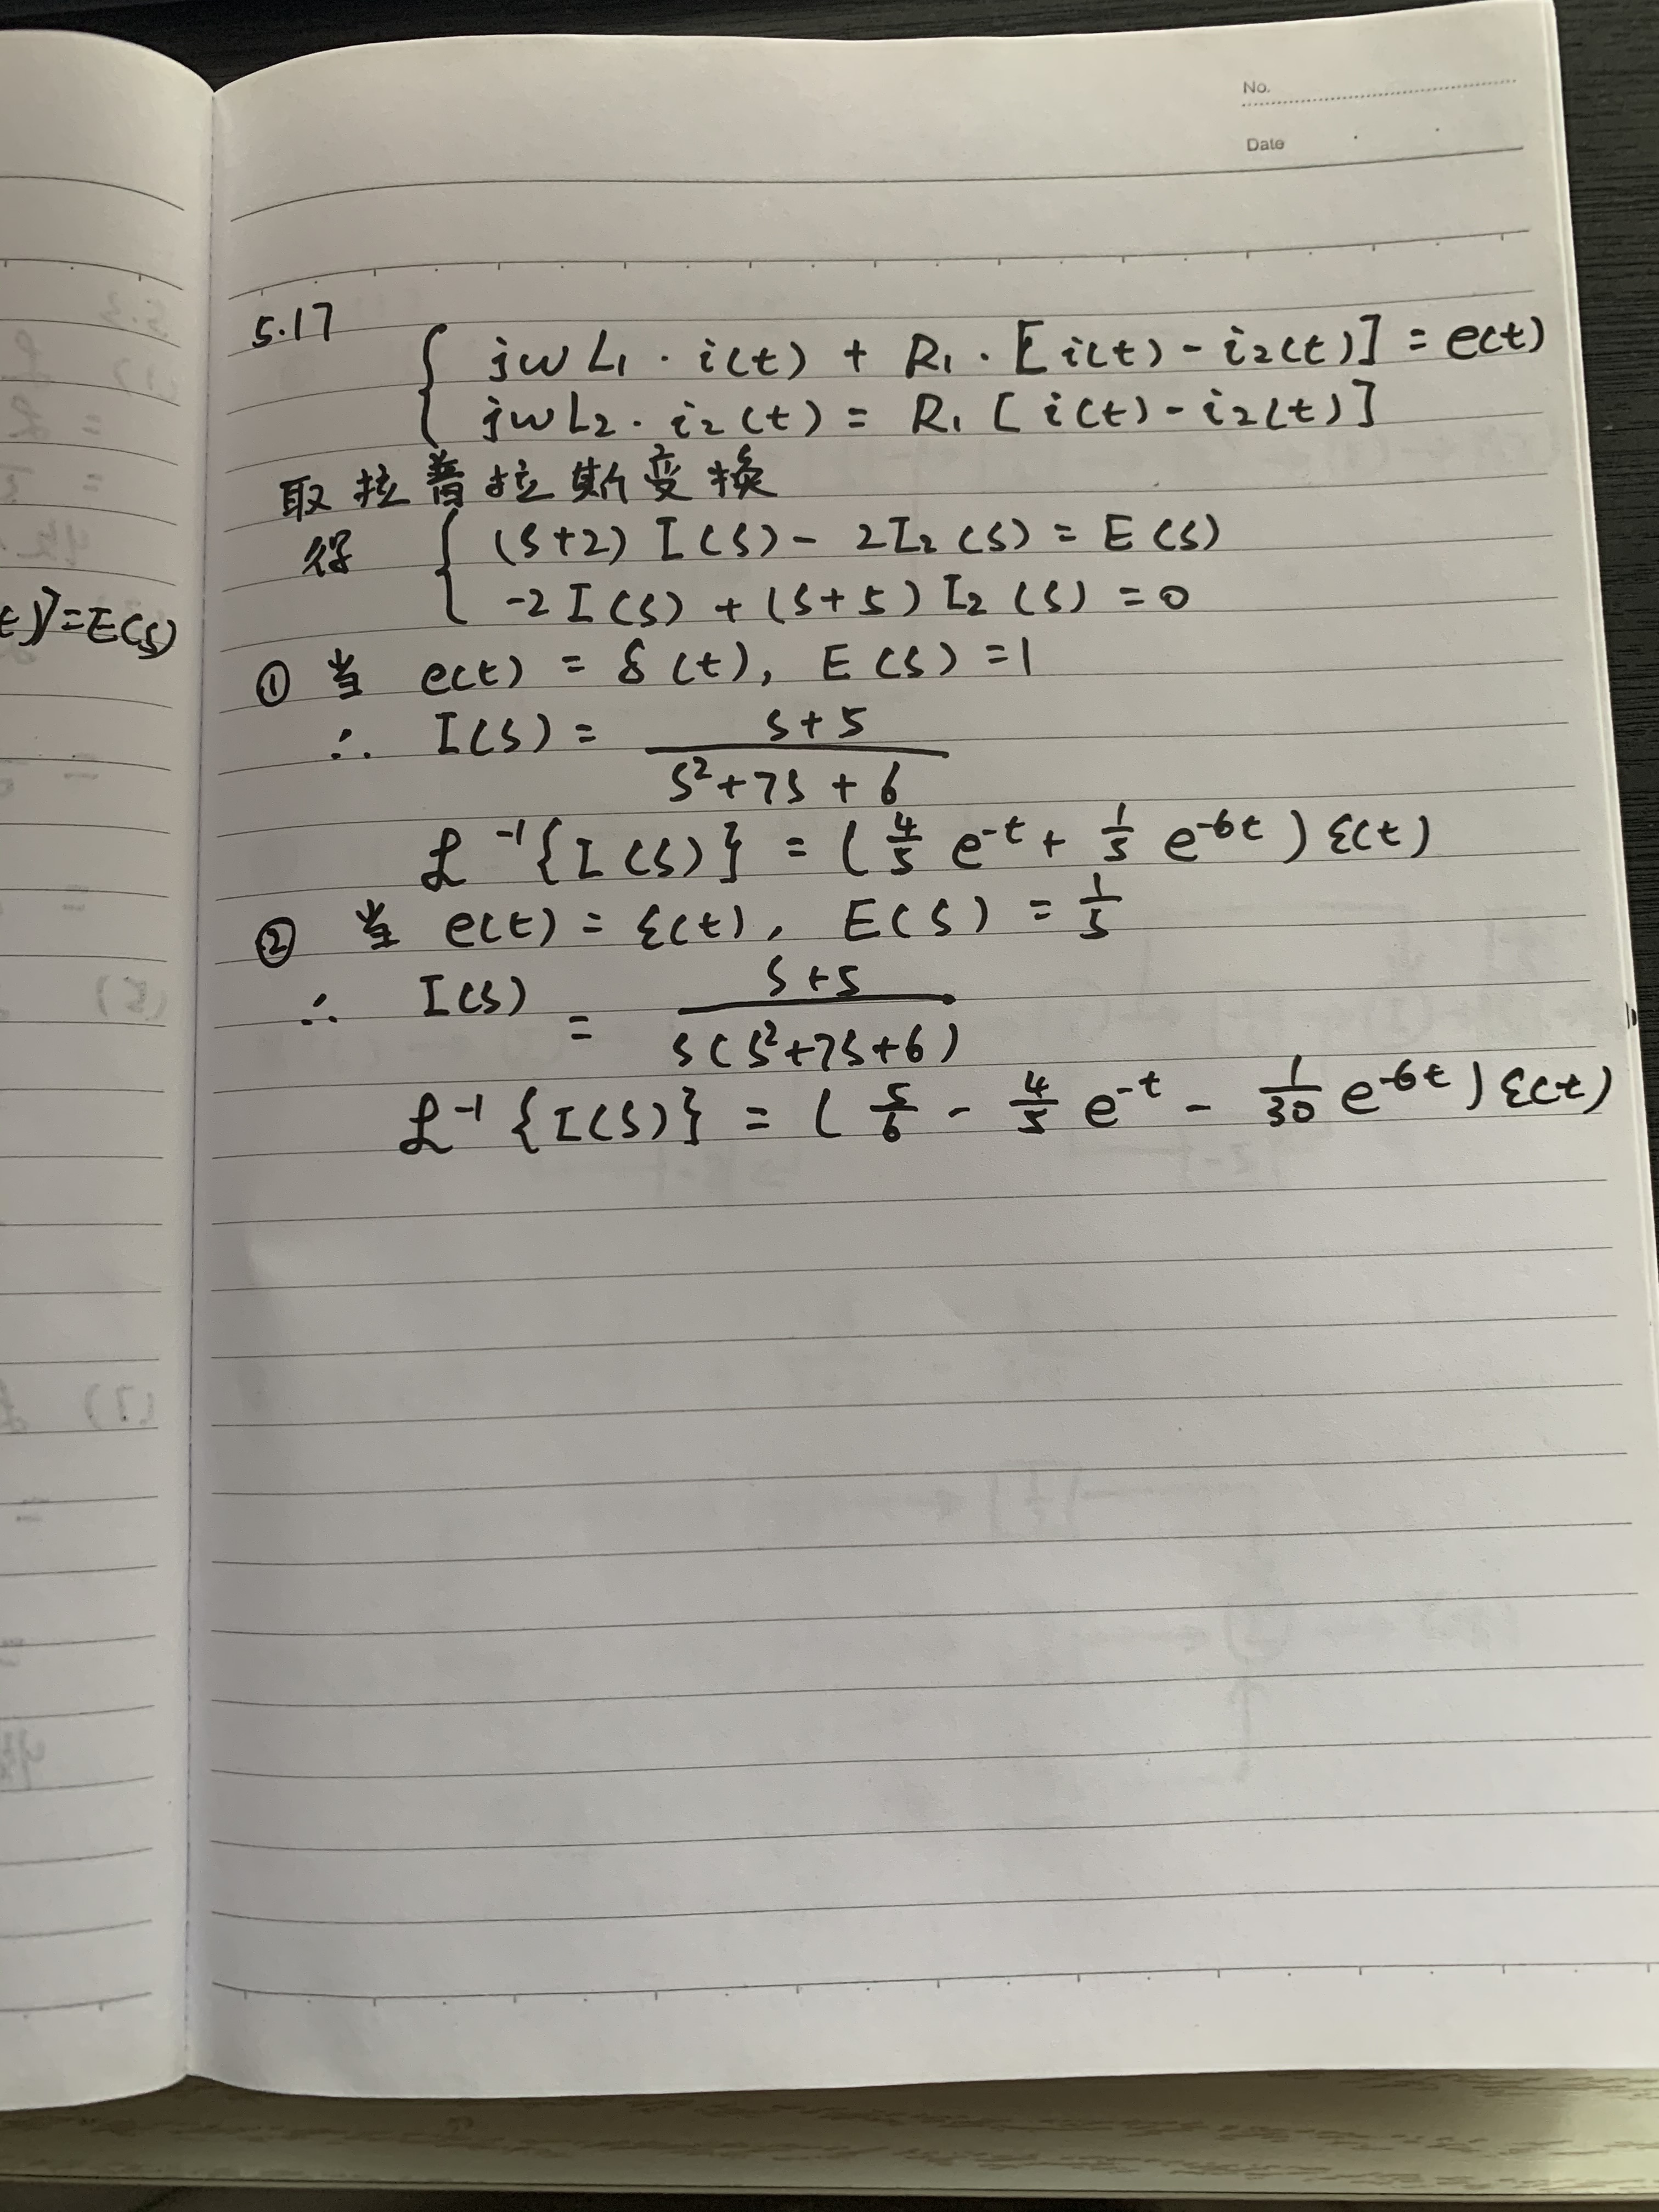 No.
Date
5.17
{ jωL₁ · i(t) + R₁ · [i(t) - i₂(t)] = e(t)
jωL₂ · i₂(t) = R₁ [i(t) - i₂(t)]
取拉普拉斯变换
得 { (s+2) I(s) - 2I₂(s) = E(s)
-2I(s) + (s+5) I₂(s) = 0
t)]=E(s)
① 当 e(t) = δ(t), E(s) = 1
∴ I(s) = (s+5)/(s²+7s+6)
ℒ⁻¹{I(s)} = (4/5 e⁻ᵗ + 1/5 e⁻⁶ᵗ) ε(t)
② 当 e(t) = ε(t), E(s) = 1/s
∴ I(s) = (s+5)/(s(s²+7s+6))
ℒ⁻¹{I(s)} = (5/6 - 4/5 e⁻ᵗ - 1/30 e⁻⁶ᵗ) ε(t)